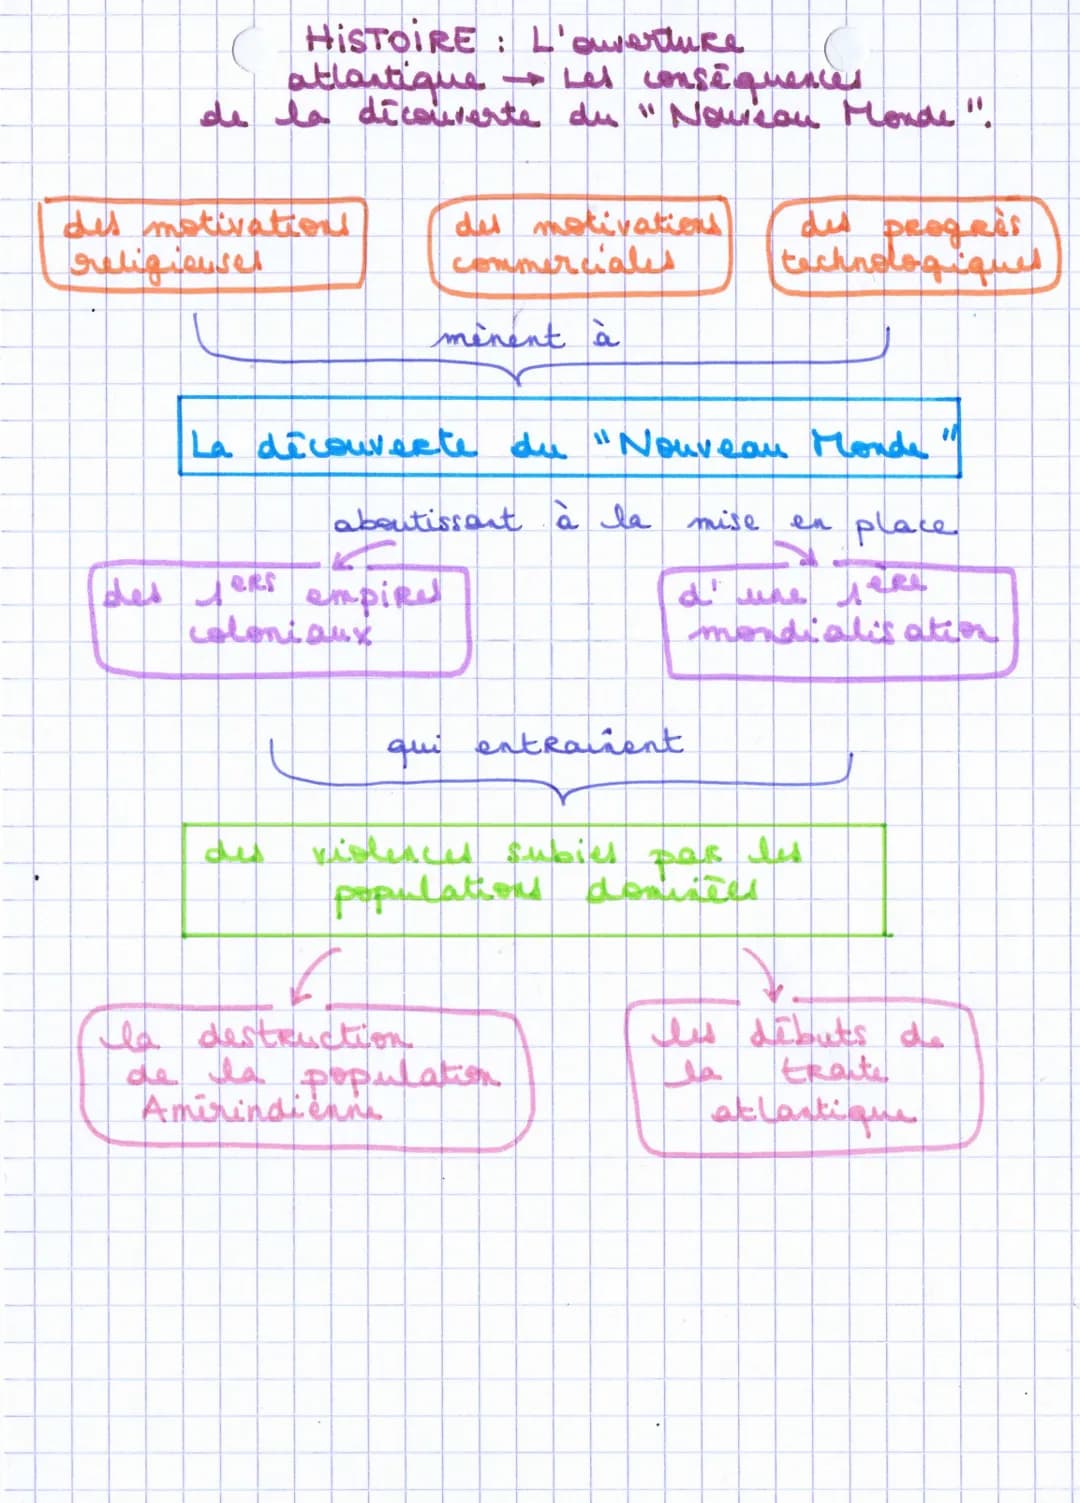 HiSTOiRE : L'ouverture
atlantique → Les conséquences
de la découverte du "Nouveau Monde".
des motivations
religieuses
des motivations
commerciales
des progrès
technologiques
mènent à
La découverte du "Nouveau Monde"
aboutissant à la mise en place
des 1ers empires
coloniaux
d'une 1ère
mondialisation
qui entraînent
des violences subies par les
populations dominées
la destruction
de la population
Amérindienne
les débuts de
la traite
atlantique